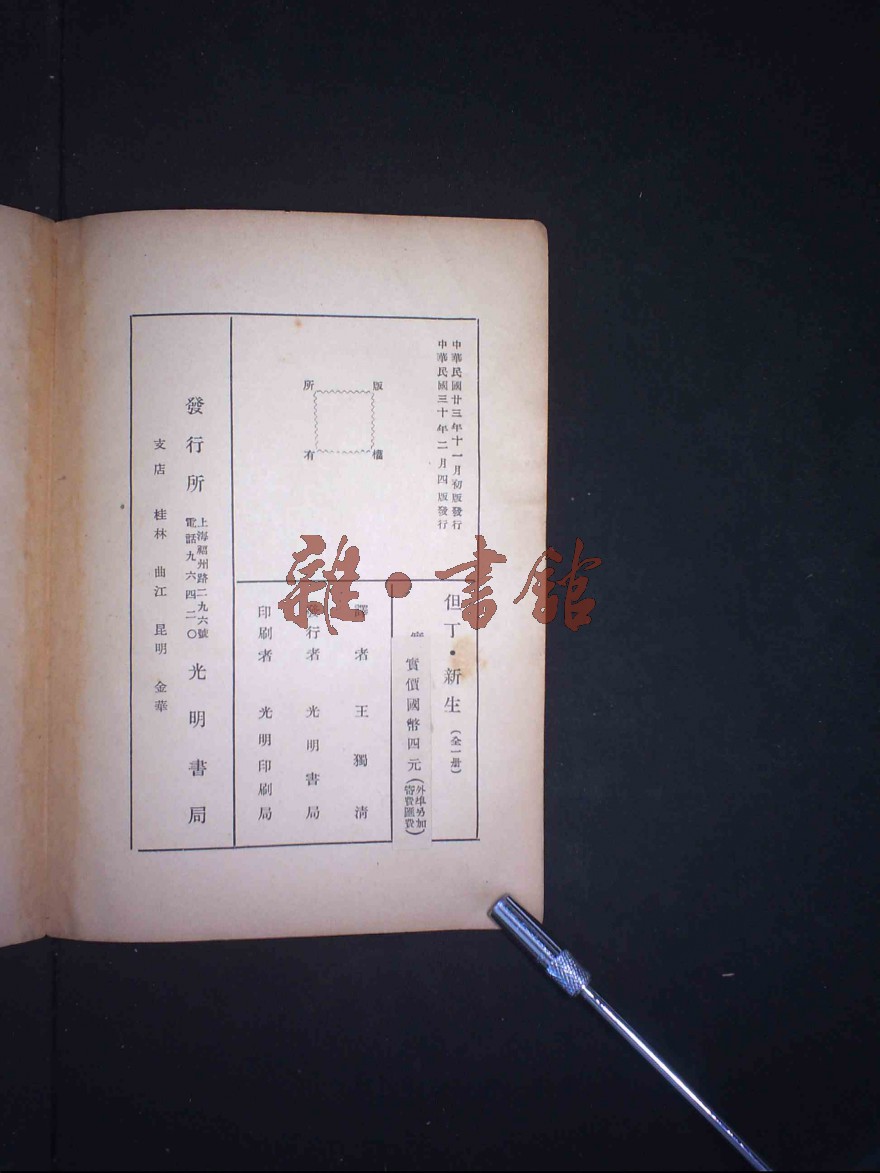 中華民國廿三年十一月初版發行
中華民國三十年二月四版發行
版權所有
但丁·新生（全一册）
實價國幣四元（外埠另加寄費匯費）
譯者 王獨清
發行者 光明書局
印刷者 光明印刷局
發行所 上海福州路二九六號 電話九六四二〇 光明書局
支店 桂林 曲江 昆明 金華
雜·書館